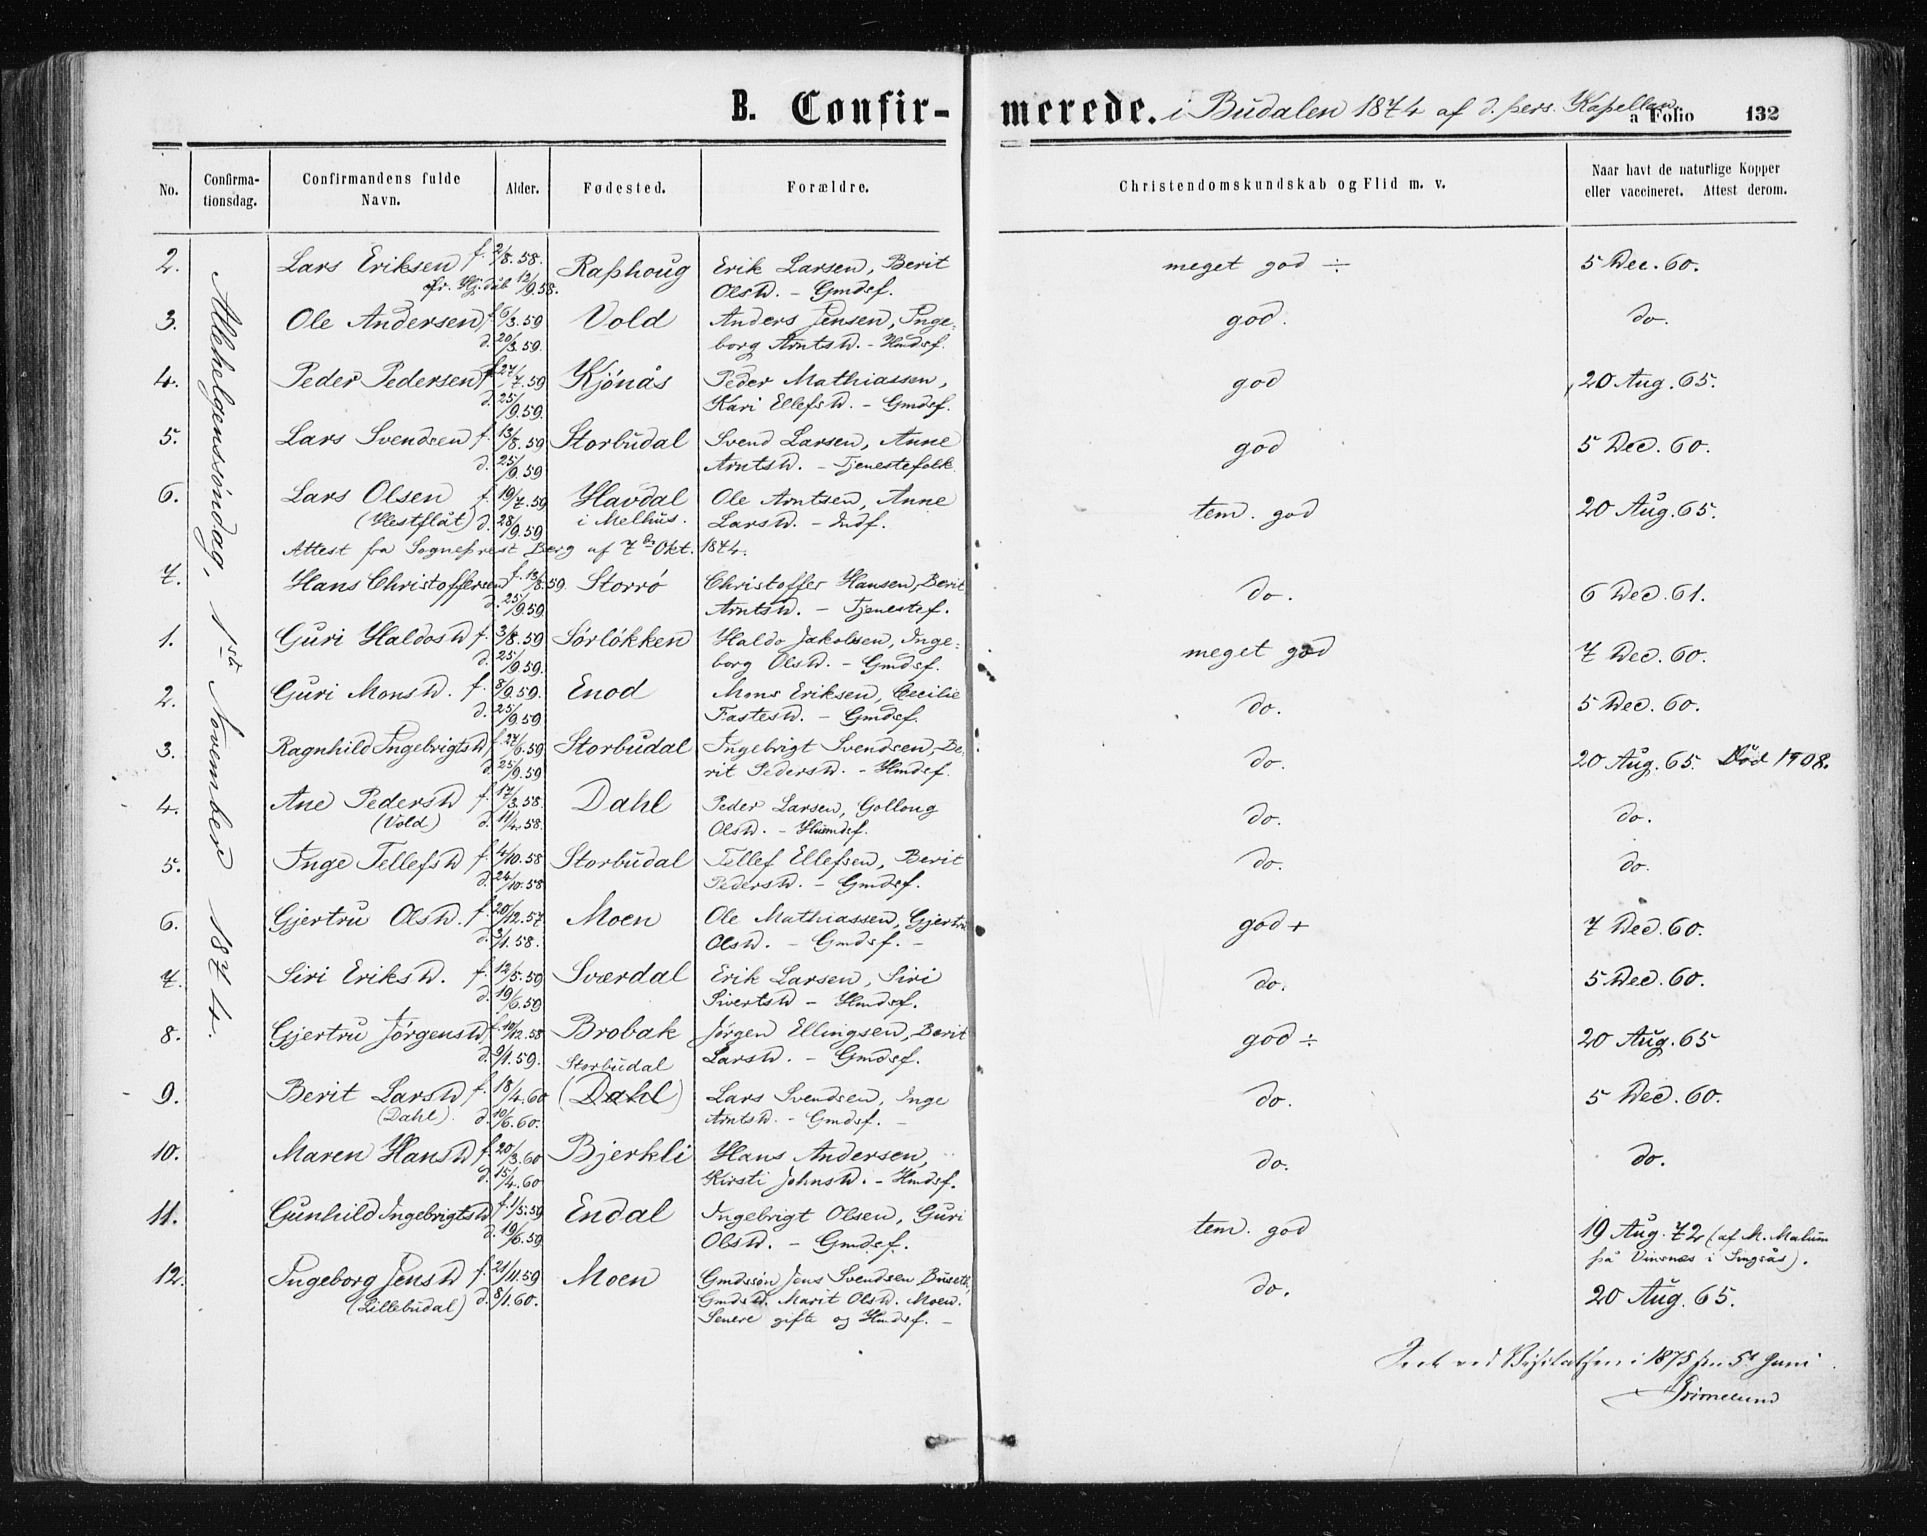 B. Confir- merede. i Budalen 1874 af d. pers. Kapellan. a Folio 132
No.
Confirma-
tionsdag.
Confirmandens fulde
Navn.
Alder.
Fødested.
Forældre.
Christendomskundskab og Flid m. v.
Naar havt de naturlige Kopper
eller vaccineret. Attest derom.
Allehelgenssöndag, 1ste November 1874.
2. Lars Eriksen f. 2/8.58. Raphoug Erik Larsen, Berit meget god ÷ 5 Dec. 60.
fr. Hj.daab 12/9.58. Olsd. – Gmdsf.
3. Ole Andersen f. 6/3.59 Vold Anders Jensen, Inge- god. do.
d. 20/3.59. borg Arntsd. – Hmdsf.
4. Peder Pedersen f. 27/7.59 Kjönås Peder Mathiassen, god 20 Aug. 65.
d. 25/9.59. Kari Ellefsd. – Gmdsf.
5. Lars Svendsen f. 13/8.59 Storbudal Svend Larsen, Anne god 5 Dec. 60.
d. 25/9.59 Arntsd. – Tjenestefolk.
6. Lars Olsen f. 19/7.59 Havdal Ole Arntsen, Anne tem. god 20 Aug. 65.
(Hestflåt) d. 28/9.59 i Melhus. Larsd. – Indf.
Attest fra Sogneprest Berg af 7de Okt. 1874.
7. Hans Christoffersen f. 13/8.59 Storrø Christoffer Hansen, Berit do. 6 Dec. 61.
d. 25/9.59 Arntsd. – Tjenestef.
1. Guri Haldosd f. 3/8.59 Sörlökken Haldo Jakobsen, Inge- meget god 7 Dec. 60.
d. 25/9.59. borg Olsd. – Gmdsf.
2. Guri Monsd. f. 8/9.59. Enod Mons Eriksen, Cecilie do. 5 Dec. 60.
d. 25/9.59 Fastesd. – Gmdsf.
3. Ragnhild Ingebrigtsd f. 27/6.59 Storbudal Ingebrigt Svendsen, Be- do. 20 Aug. 65. Död 1908.
d. 25/9.59 rit Pedersd. – Hmdsf.
4. Ane Pedersd f. 17/3.58. Dahl Peder Larsen, Gollong do. do.
(Vold) d. 11/4.58. Olsd. – Husmdsf.
5. Inge Tellefsd f. 4/10.58 Storbudal Tellef Ellefsen, Berit do. do.
d. 24/10.58 Pedersd. – Gmdsf.
6. Gjertru Olsd. f. 20/12.57 Moen Ole Mathiassen, Gjertru god + 7 Dec. 60.
d. 3/1.58. Olsd. – Gmdsf. –
7. Siri Eriksd. f. 12/5.59 Sværdal Erik Larsen, Siri do. 5 Dec. 60.
d. 19/6.59 Sivertsd – Hmdsf.
8. Gjertru Jörgensd f. 10/12.58 Brobak Jörgen Ellingsen, Berit god ÷ 20 Aug. 65
d. 9/1.59. Larsd. – Gmdsf.
Storbudal
9. Berit Larsd f. 18/4.60 (Dahl) Lars Svendsen, Inge do. 5 Dec. 60.
(Dahl) d. 10/6.60. Arntsd. – Gmdsf. –
10. Maren Hansd f. 20/3.60 Bjerkli Hans Andersen, do. do.
d. 15/4.60 Kirsti Johnsd. – Hmdsf.
11. Gunhild Ingebrigtsd f. 1/5.59 Endal Ingebrigt Olsen, Guri tem. god 19 Aug. 72 (af M. Malum
d. 19/6.59 Olsd. – Gmdsf. på Vinsnes i Singsås).
12. Ingeborg Jensd f. 21/11.59 Moen Gmdssön Jens Svendsen Buseth, do. 20 Aug. 65.
(Lillebudal) d. 8/1.60. Gmdsd. Marit Olsd. Moen.
Senere gifte og Hmdsf. –
ved Visitatsen i 1875 den 5t Juni
Grimelund